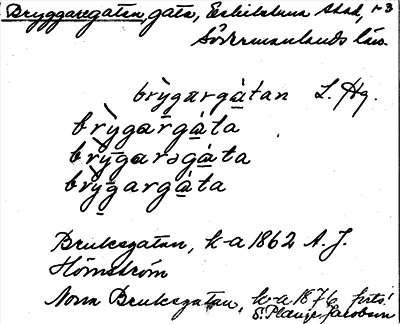 Bryggaregatan, gata, Eskilstuna stad, 1-3
Södermanlands län.
brỳgargátan L. Hg.
brỳgargáta
brỳgarəgáta
brỳgargáta
Bruksgatan, k-a 1862 A. J.
Hörnström
Norra Bruksgatan, k-a 1876 förts.
Jacobson